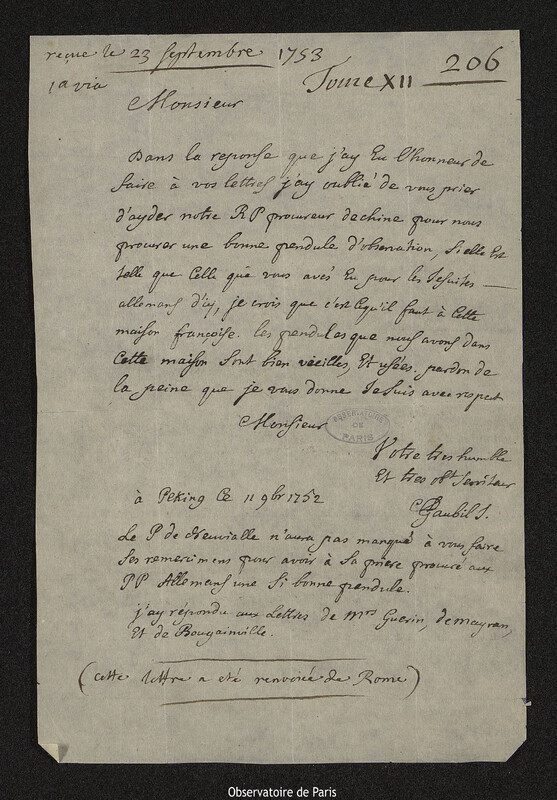 reçue le 23 Septembre 1753
206
1a via
Tome XII
Monsieur
Dans la reponse que j'ay Eu l'honneur de
faire à vos lettres j'ay oublié de vous prier
d'ayder notre RP procureur dechine pour nous
procurer une bonne pendule d'observation, Si elle Est
telle que Celle que vous avés Eu pour les Jesuites
allemans d'icy, je crois que c'est Cequ'il faut à Cette
maison françoise. les pendules que nous avons dans
Cette maison Sont bien vieilles, Et usées. pardon de
la peine que je vous donne Je Suis avec respect
Monsieur
OBSERVATOIRE
DE
PARIS
Votre tres humble
Et tres obt Serviteur
à Peking Ce 11 9br 1752
Gaubil J.
Le P de Neuvialle n'aura pas manqué à vous faire
Ses remercimens pour avoir à Sa priere procuré aux
PP Allemans une Si bonne pendule.
j'ay répondu aux Lettres de Mrs Guerin, demayran,
Et de Bougainville.
(cette lettre a eté renvoiée de Rome)
Observatoire de Paris